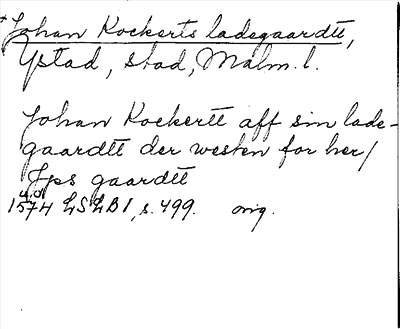 Johan Kockerts ladegaardtt,
Ystad, stad, Malm. l.
Johan Kockertt aff sin lade-
gaardtt der westen for her/
Jps gaardtt
u.å.
1574 LSLB 1, s. 499. orig.